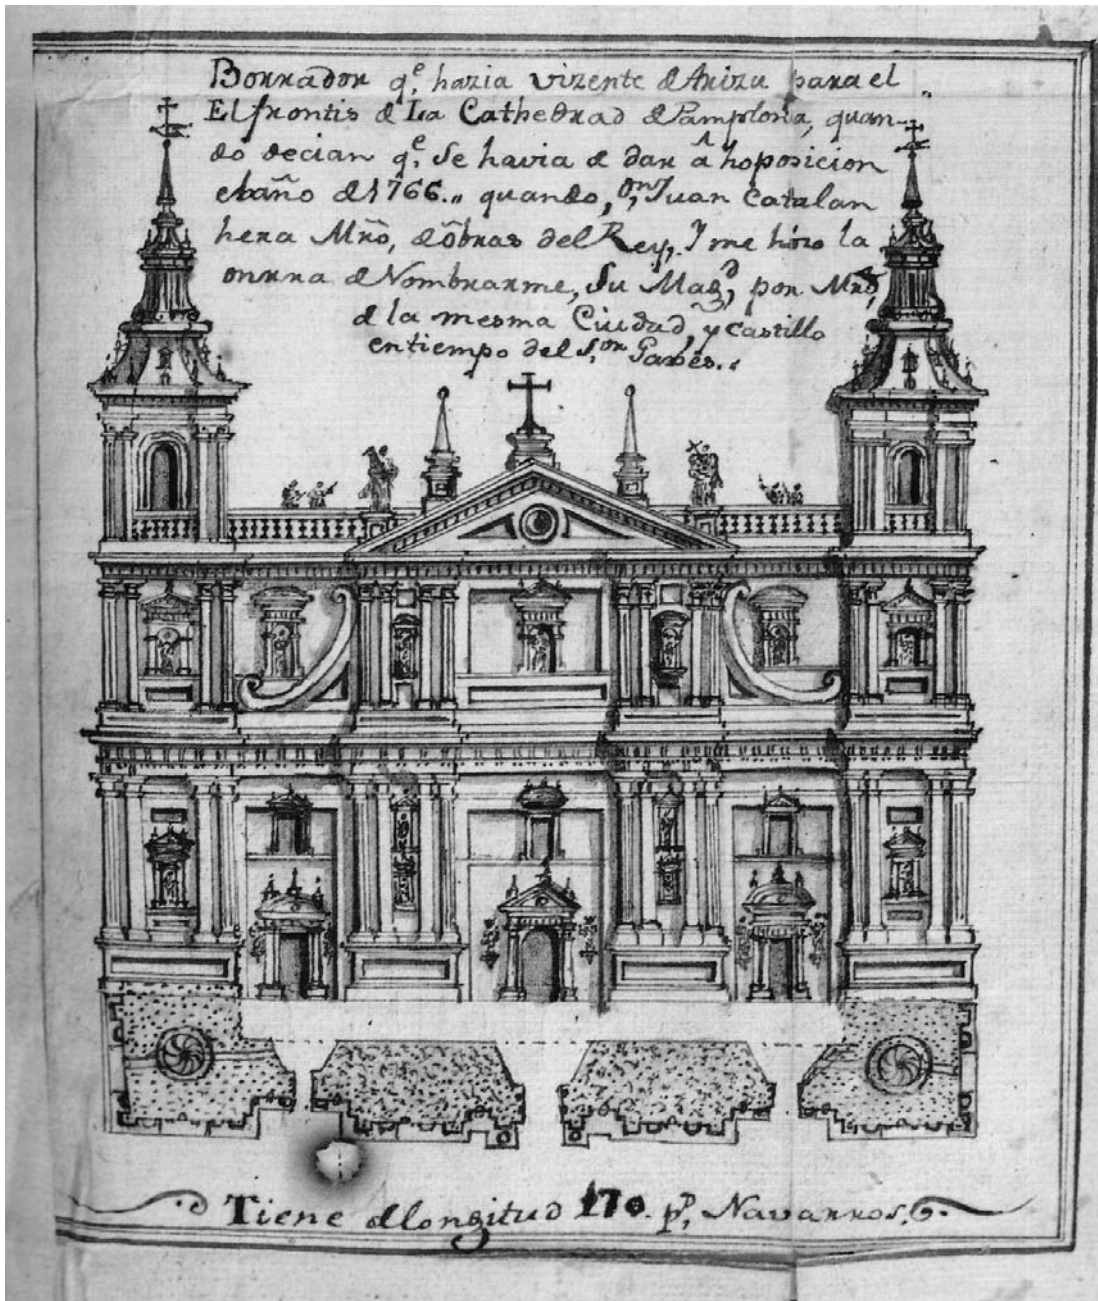 Borrador q.e hazia vizente d Arizu para el
El frontis d La Cathedrad d Pamplona, quan-
do decian q.e, Se havia d dar â hoposicion
el año d 1766.,, quando, Juan Catalan
hera Mrõ, d ôbras del Rey,. Y me hizo la
onrra d Nombrarme, Su Mag,d por Mrõ,
d la mesma Ciudad, y Castillo
en tiempo del S.or Gabes..
Tiene d longitud 170. p.s, Navarros,